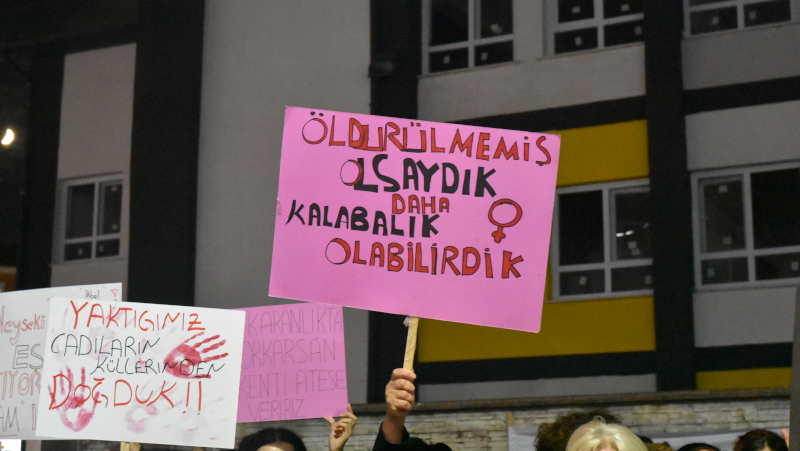 ÖLDÜRÜLMEMİŞ
OLSAYDIK
DAHA
KALABALIK
OLABİLİRDİK
YAKTIĞINIZ
CADILARIN
KÜLLERİNDEN
DOĞDUK!!
KARANLIKTA
KORKARSAN
KENTİ ATEŞE
VERİRİZ